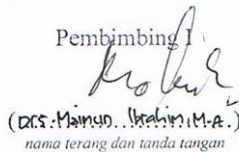 Pembimbing I
(Drs. Maimun Ibrahim, M.A.)
nama terang dan tanda tangan